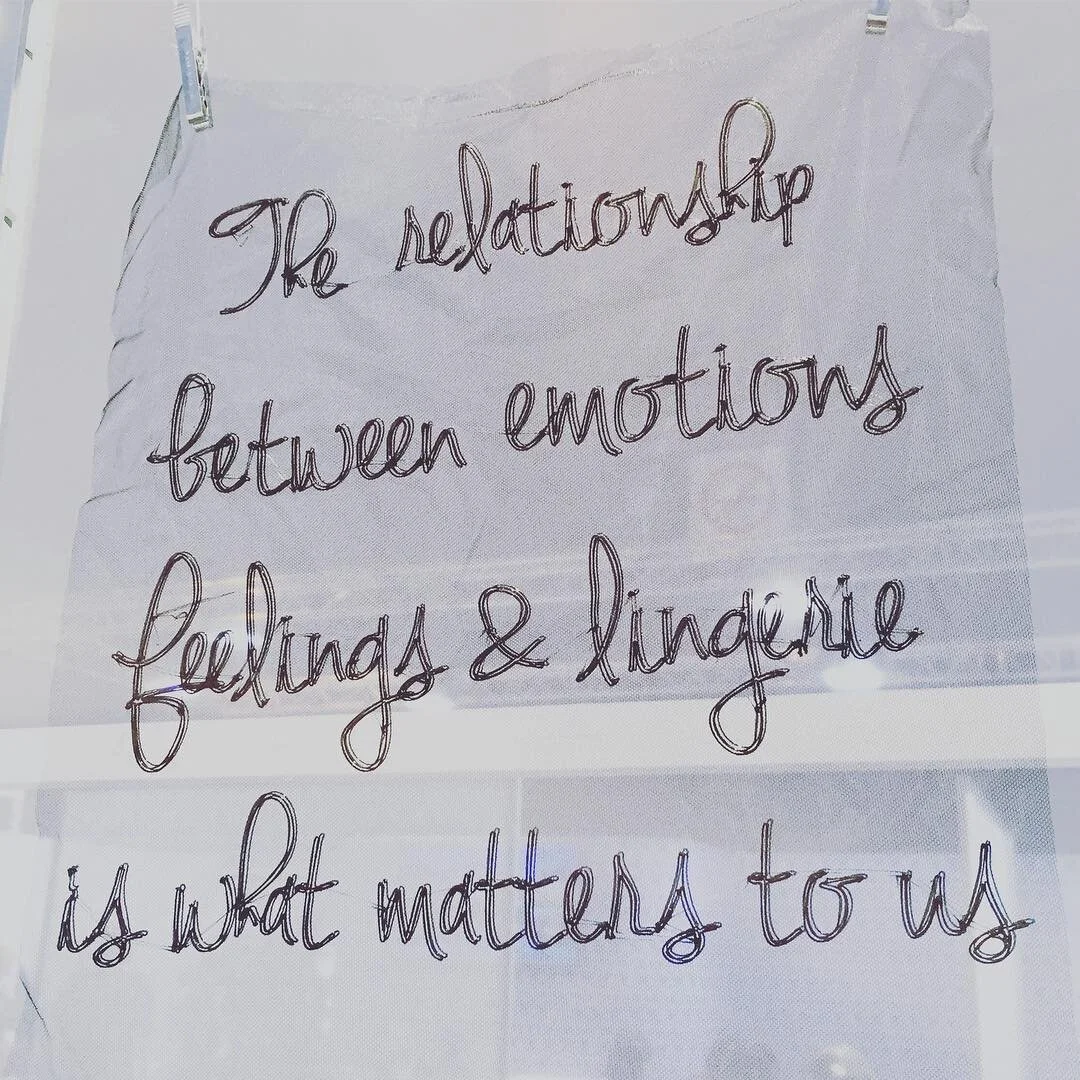 The relationship
between emotions
feelings & lingerie
is what matters to us